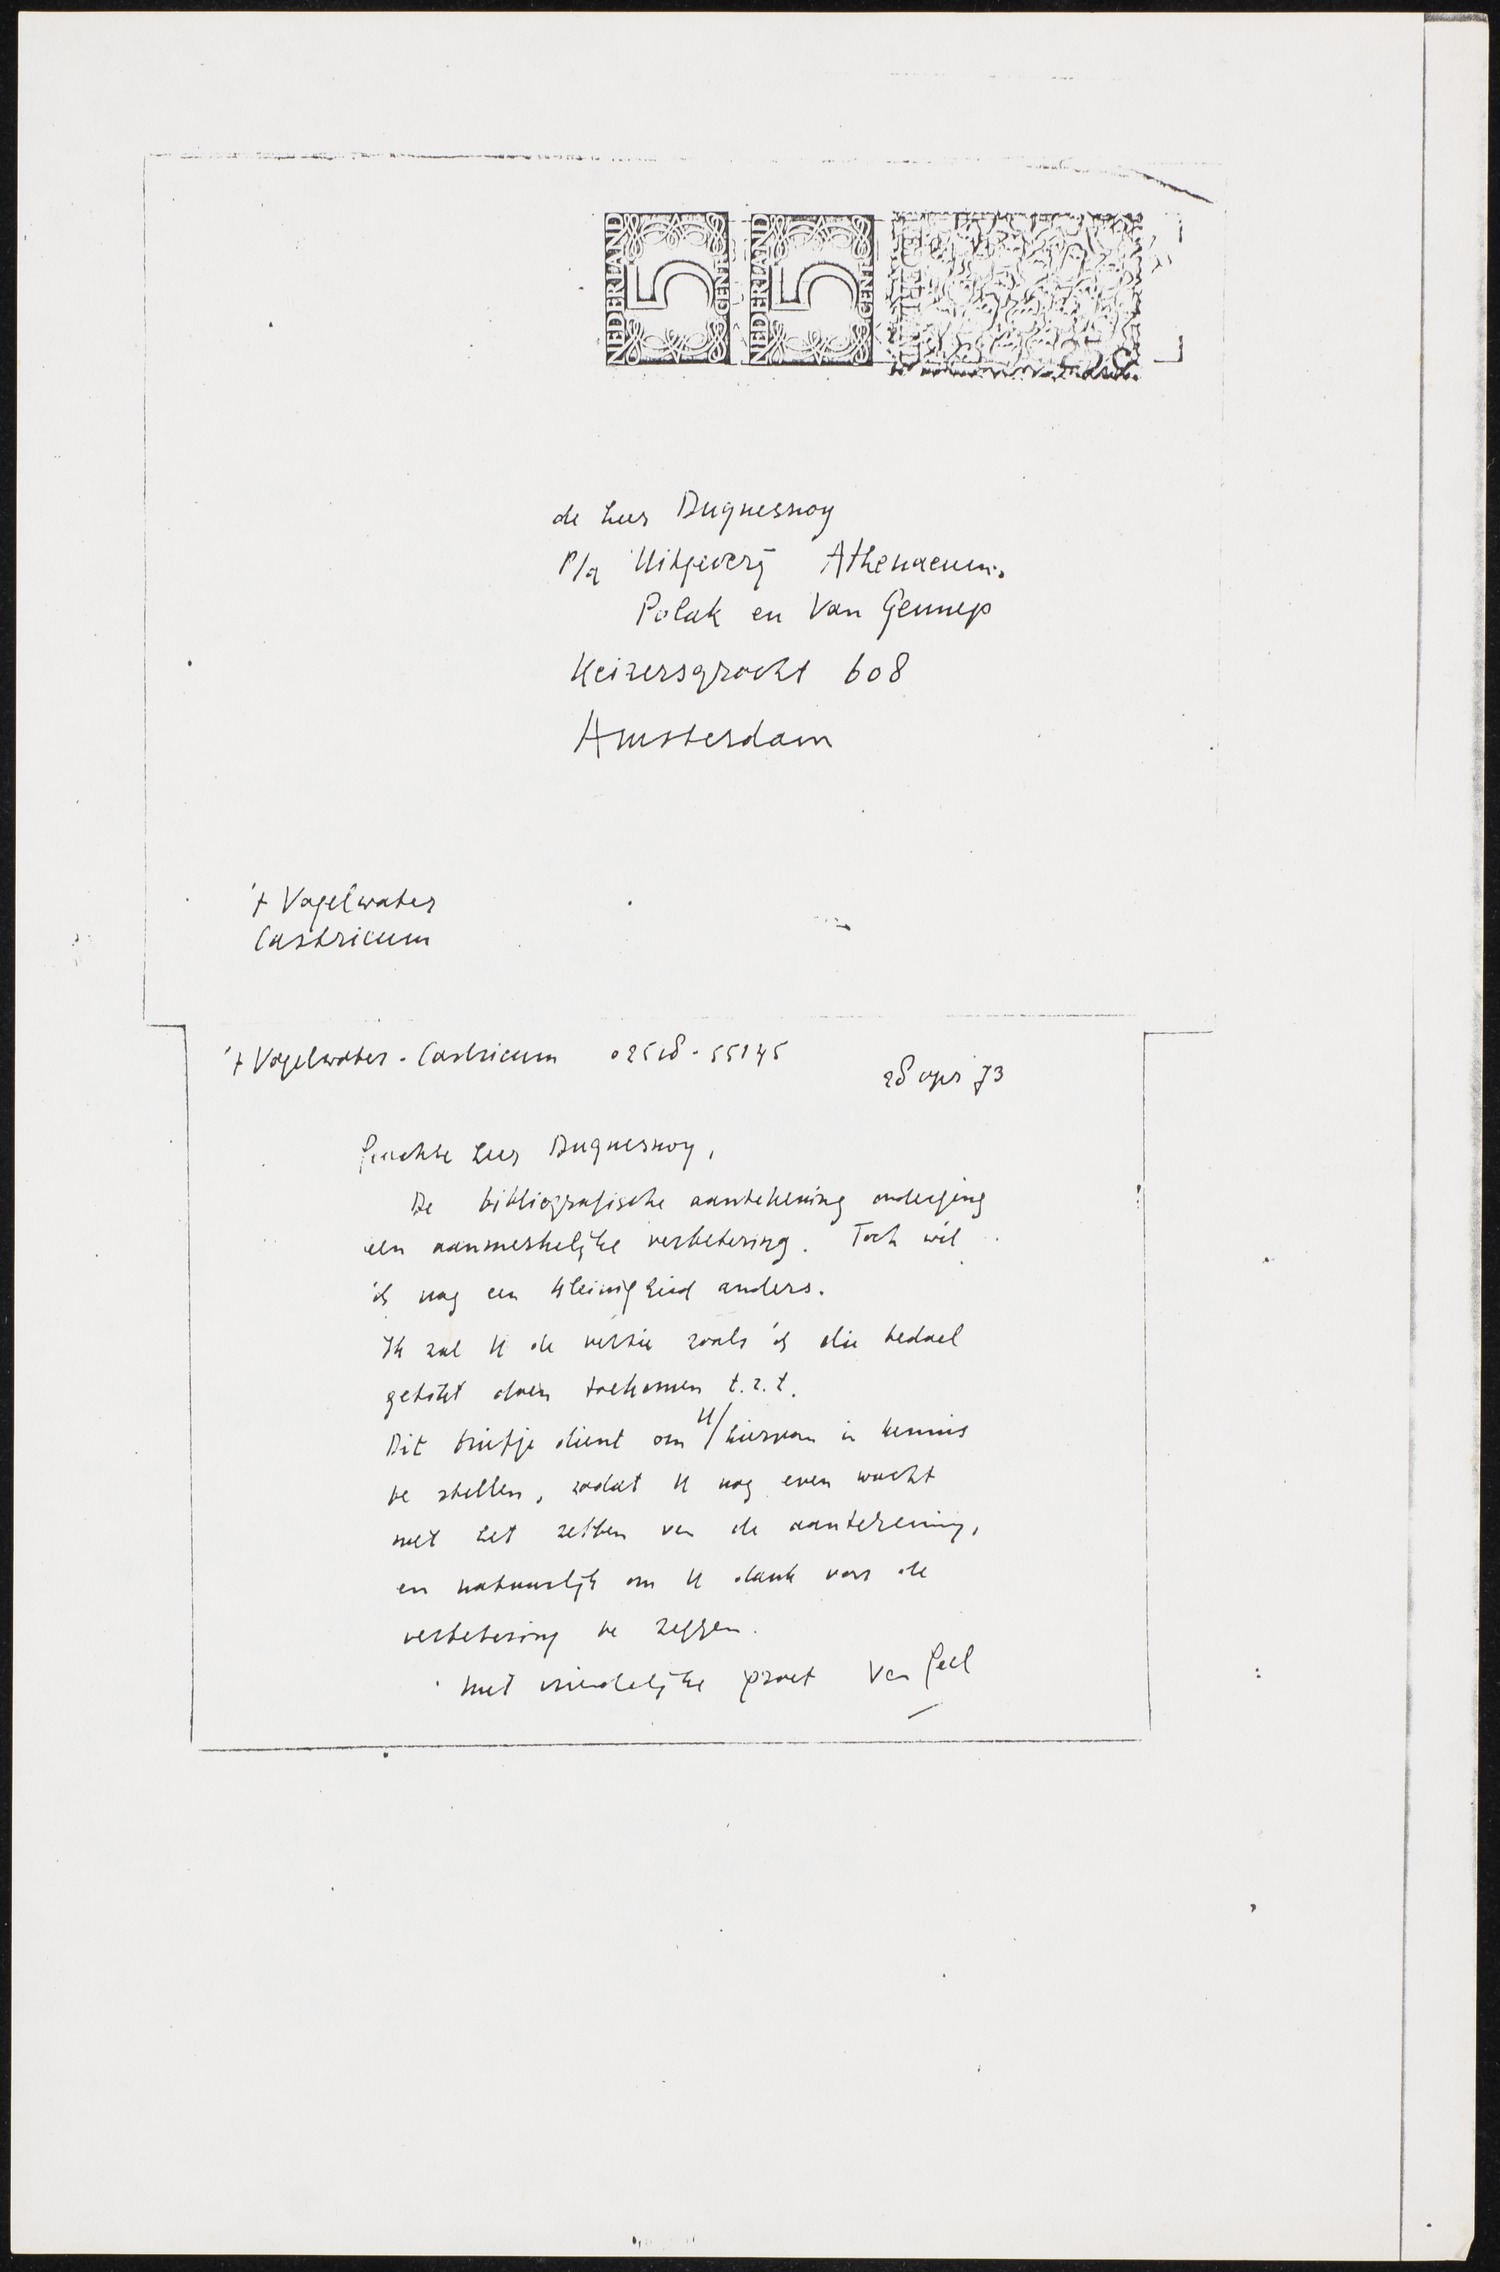 NEDERLAND 5 CENT
NEDERLAND 5 CENT
de heer Duquesnoy
p/a Uitgeverij Athenaeum.
Polak en Van Gennep
Keizersgracht 608
Amsterdam
't Vogelwater
Castricum
't Vogelwater - Castricum 02518-55145
28 apr 73
Geachte heer Duquesnoy,
De bibliografische aantekening onderging
een aanmerkelijke verbetering. Toch wil
ik nog een kleinigheid anders.
Ik zal U de versie zoals ik die bedoel
getikt doen toekomen t.z.t.
Dit briefje dient om U/hiervan in kennis
te stellen, zodat U nog even wacht
met het zetten van de aantekening,
en natuurlijk om U dank voor de
verbetering te zeggen.
met vriendelijke groet Van Geel